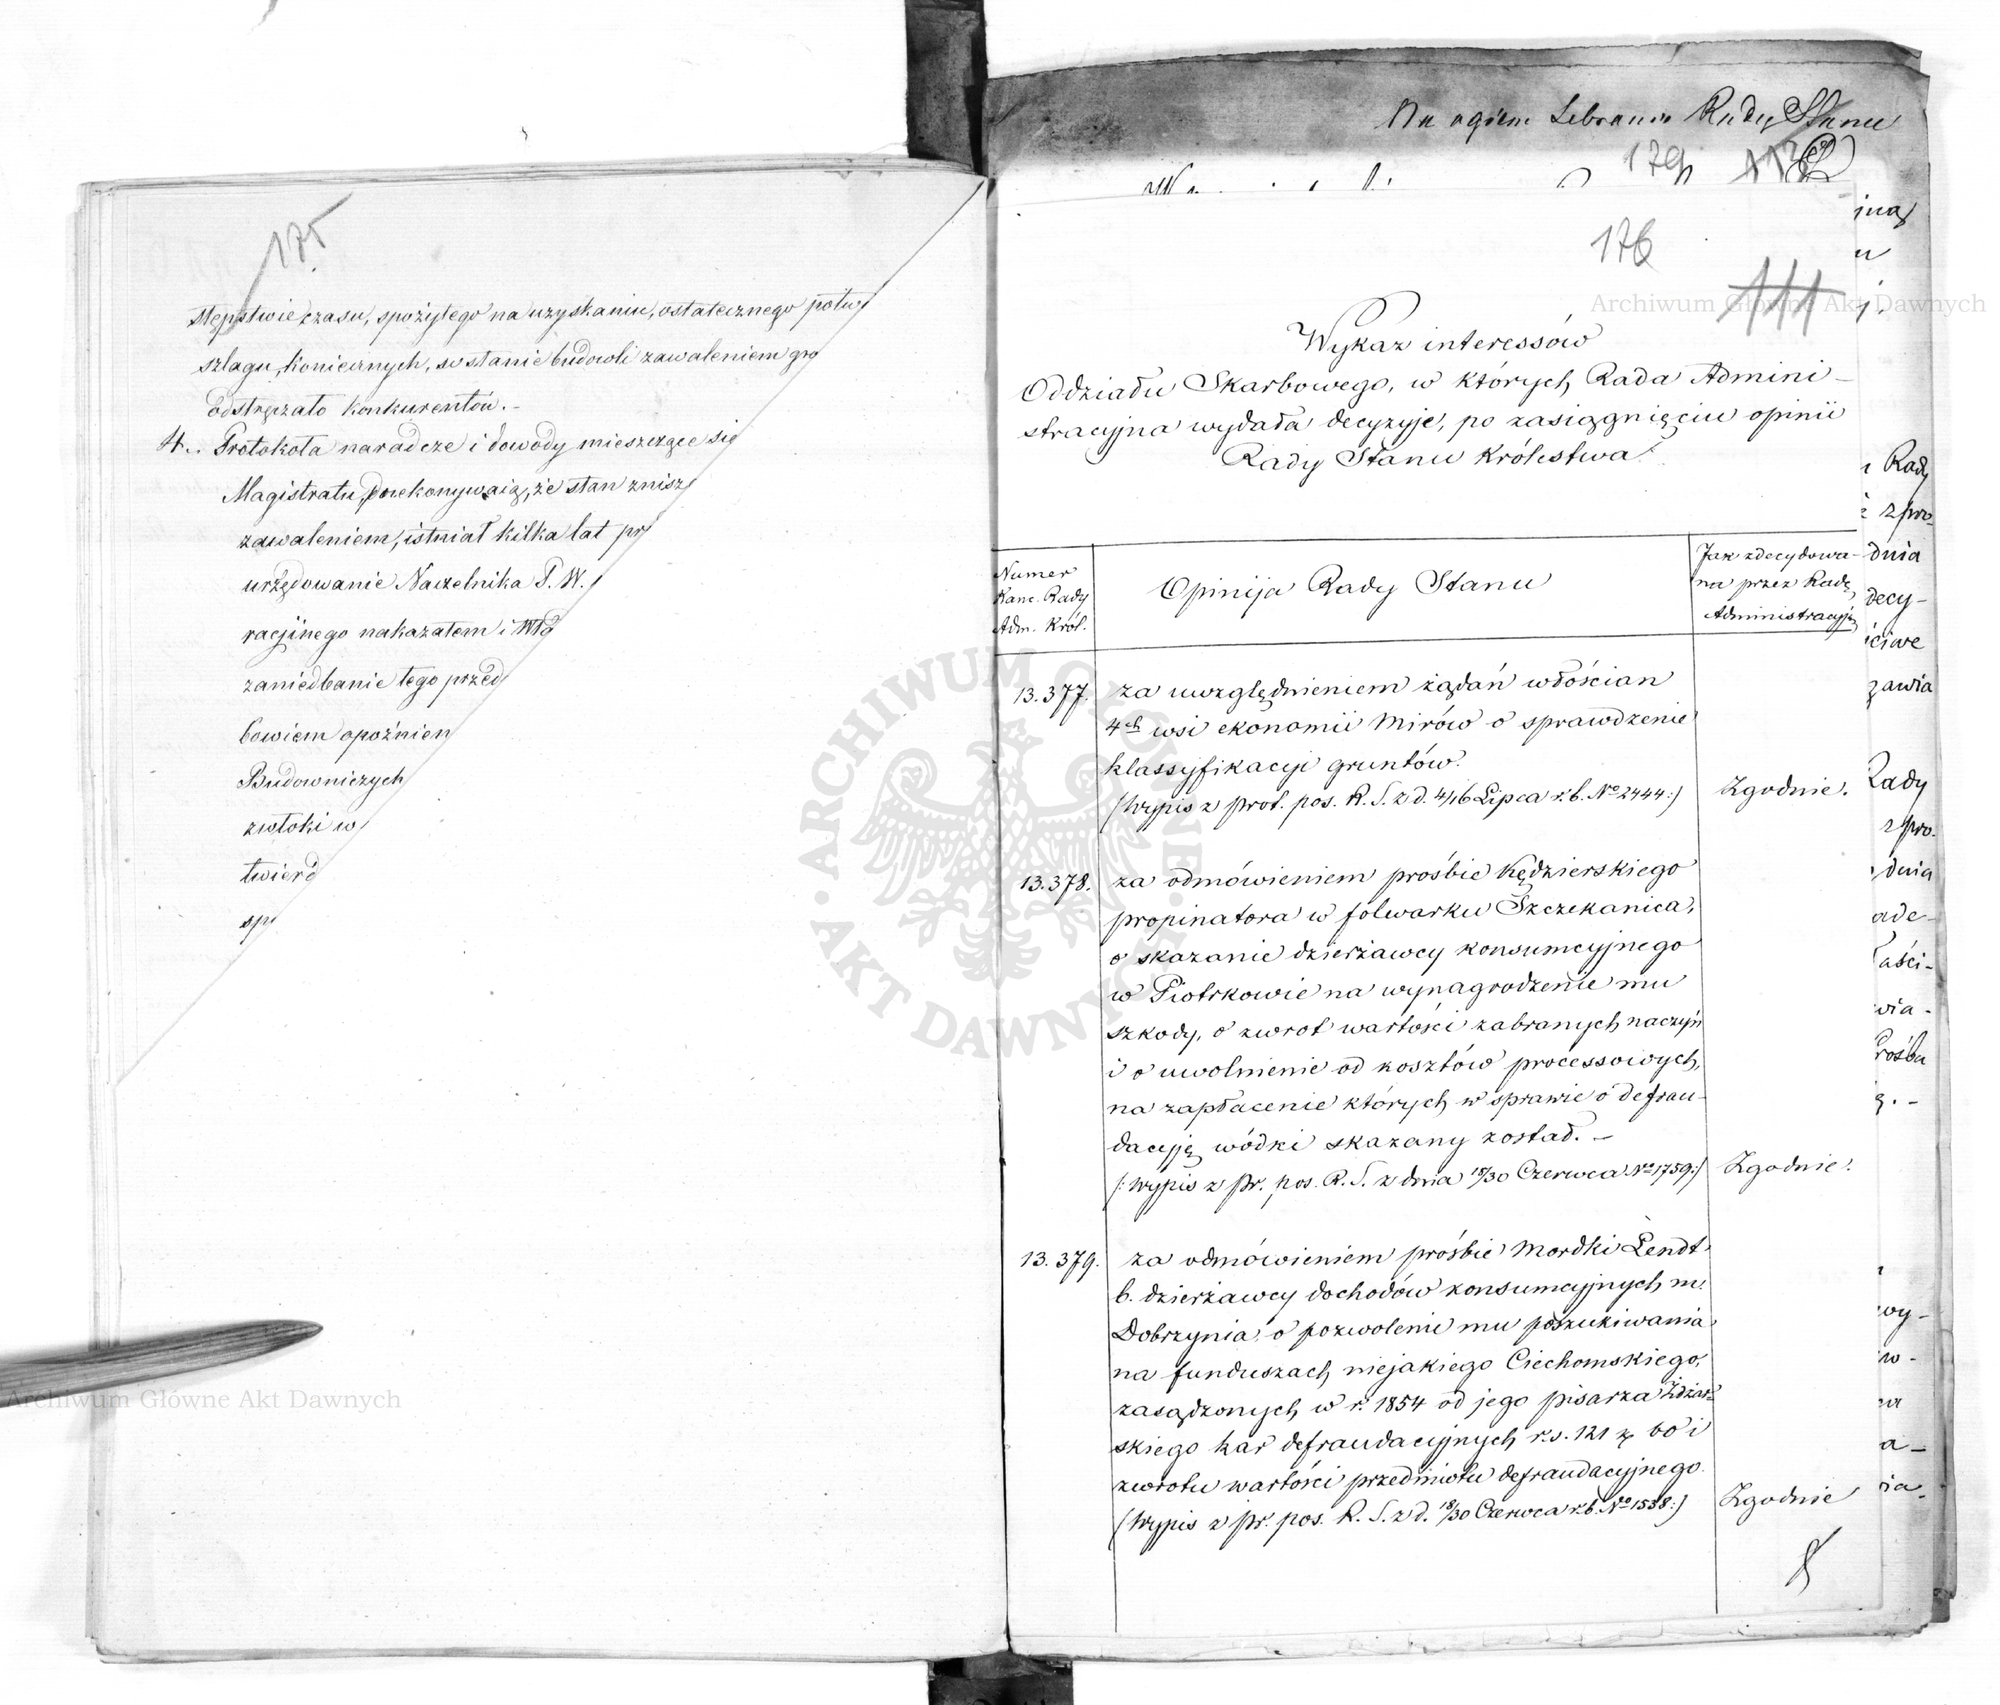 175
stępstwie czasu, spożytego na uzyskaniu, ostatecznego potw
szlagu, koniecznych, w stanie budowli zawaleniem gro
odstręczało konkurentów. –
4. Protokoła naradcze i dowody mieszczące się
Magistratu, przekonywają, że stan znisz
zawaleniem, istniał kilka lat pr
urzędowanie Naczelnika P. W.
racyjnego nakazałem i Wła
zaniedbanie tego przed
bowiem opoźnien
Budowniczych
zwłoki w
twierd
sp
Na ogólne Zebranie Rady Stanu
179 112
176
111
Wykaz interessów
Oddziału Skarbowego, w których Rada Admini–
stracyjna wydała decyzyje, po zasiągnięciu opinii
Rady Stanu Królestwa.
Numer
Kanc. Rady
Adm. Król.
Opinija Rady Stanu
Jak zdecydowa–
no przez Radę
Administracyjną
13.377. za uwzględnieniem żądań włościan
4ch wsi ekonomii Mirów o sprawdzenie
klassyfikacyi gruntów.
(Wypis z prot. pos. R. S. z d. 4/16 Lipca r. b. No 2444:) Zgodnie.
13.378. za odmówieniem prośbie Kędzierskiego
propinatora w folwarku Szczekanica,
o skazanie dzierżawcy konsumcyjnego
w Piotrkowie na wynagrodzenie mu
szkody, o zwrot wartości zabranych naczyń
i o uwolnienie od kosztów processowych,
na zapłacenie których w sprawie o defrau–
dacyję wódki skazany został. –
(: Wypis z pr. pos. R. S. z dnia 18/30 Czerwca No 1759:) Zgodnie.
13.379. za odmówieniem prośbie Mordki Lendt
b. dzierżawcy dochodów konsumcyjnych m.
Dobrzynia o pozwolenie mu poszukiwania
na funduszach niejakiego Ciechomskiego,
zasądzonych w r. 1854 od jego pisarza Zdżar–
skiego kar defraudacyjnych r. s. 121 k. 60 i
zwrotu wartości przedmiotu defraudacyjnego.
(Wypis z pr. pos. R. S. z d. 18/30 Czerwca r. b. No 1558:) Zgodnie
Rady
z pro–
dnia
decy–
zawia
Rady
z pro–
dnia
Archiwum Główne Akt Dawnych
Archiwum Główne Akt Dawnych
ARCHIWUM GŁÓWNE AKT DAWNYCH